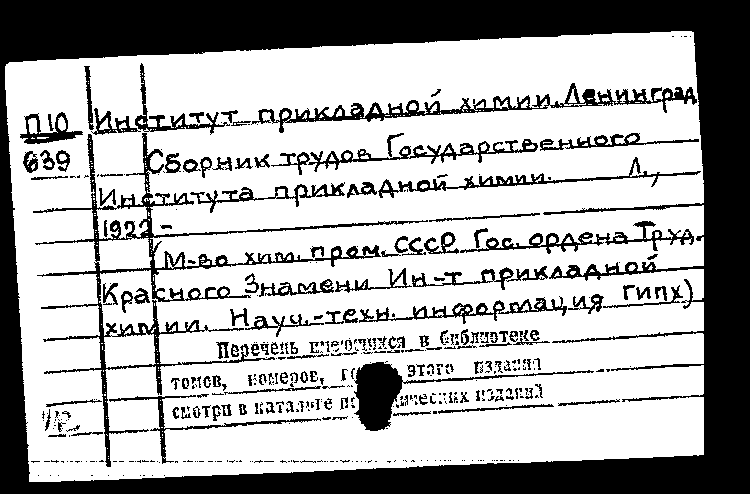 П10 Институт прикладной химии. Ленинград
639 Сборник трудов Государственного
Института прикладной химии. Л.,
1922 -
(М-во хим. пром. СССР. Гос. ордена Труд.
Красного Знамени Ин-т прикладной
химии. Науч.-техн. информация ГИПХ)
Перечень имеющихся в библиотеке
томов, номеров, этого издания
смотри в каталоге изданий